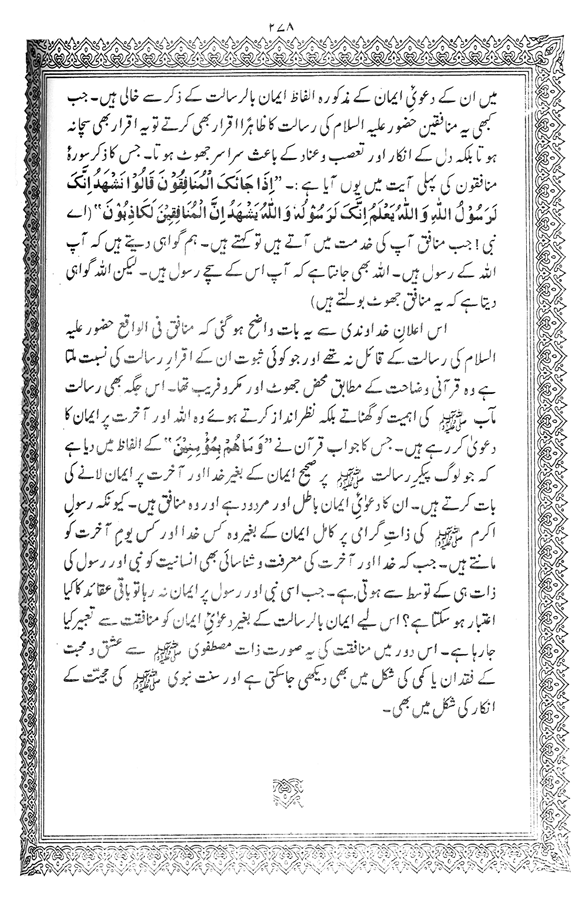 ۲۷۸
میں ان کے دعویٰ ایمان کے مذکورہ الفاظ ایمان بالرسالت کے ذکر سے خالی ہیں۔ جب
کبھی یہ منافقین حضور علیہ السلام کی رسالت کا ظاہرًا اقرار بھی کرتے تو یہ اقرار بھی سچا نہ
ہوتا بلکہ دل کے انکار اور تعصب و عناد کے باعث سراسر جھوٹ ہوتا۔ جس کا ذکر سورۂ
منافقون کی پہلی آیت میں یوں آیا ہے :۔ ”اِذَا جَآئَکَ الْمُنَافِقُوْنَ قَالُوْا نَشْهَدُ اِنَّکَ
لَرَسُوْلُ اللهِ وَ اللهُ یَعْلَمُ اِنَّکَ لَرَسُوْلُهٗ وَ اللهُ یَشْهَدُ اِنَّ الْمُنَافِقِیْنَ لَکَاذِبُوْنَ“ (اے
نبی! جب منافق آپ کی خدمت میں آتے ہیں تو کہتے ہیں۔ ہم گواہی دیتے ہیں کہ آپ
اللہ کے رسول ہیں۔ اللہ بھی جانتا ہے کہ آپ اس کے سچے رسول ہیں۔ لیکن اللہ گواہی
دیتا ہے کہ یہ منافق جھوٹ بولتے ہیں)
اس اعلانِ خداوندی سے یہ بات واضح ہو گئی کہ منافق فی الواقع حضور علیہ
السلام کی رسالت کے قائل نہ تھے اور جو کوئی ثبوت ان کے اقرارِ رسالت کی نسبت ملتا
ہے وہ قرآنی وضاحت کے مطابق محض جھوٹ اور مکر و فریب تھا۔ اس جگہ بھی رسالت
مآب ﷺ کی اہمیت کو گھٹاتے بلکہ نظر انداز کرتے ہوئے وہ اللہ اور آخرت پر ایمان کا
دعویٰ کر رہے ہیں۔ جس کا جواب قرآن نے ”وَمَا هُمْ بِمُؤْمِنِیْنَ“ کے الفاظ میں دیا ہے
کہ جو لوگ پیکرِ رسالت ﷺ پر صحیح ایمان کے بغیر خدا اور آخرت پر ایمان لانے کی
بات کرتے ہیں۔ ان کا دعویٰ ایمان باطل اور مردود ہے اور وہ منافق ہیں۔ کیونکہ رسولِ
اکرم ﷺ کی ذاتِ گرامی پر کامل ایمان کے بغیر وہ کس خدا اور کس یومِ آخرت کو
مانتے ہیں۔ جب کہ خدا اور آخرت کی معرفت و شناسائی بھی انسانیت کو نبی اور رسول کی
ذات ہی کے توسط سے ہوتی ہے۔ جب اسی نبی اور رسول پر ایمان نہ رہا تو باقی عقائد کا کیا
اعتبار ہو سکتا ہے؟ اس لیے ایمان بالرسالت کے بغیر دعویٰ ایمان کو منافقت سے تعبیر کیا
جا رہا ہے۔ اس دور میں منافقت کی یہ صورت ذات مصطفوی ﷺ سے عشق و محبت
کے فقدان یا کمی کی شکل میں بھی دیکھی جا سکتی ہے اور سنت نبوی ﷺ کی حجیّت کے
انکار کی شکل میں بھی۔